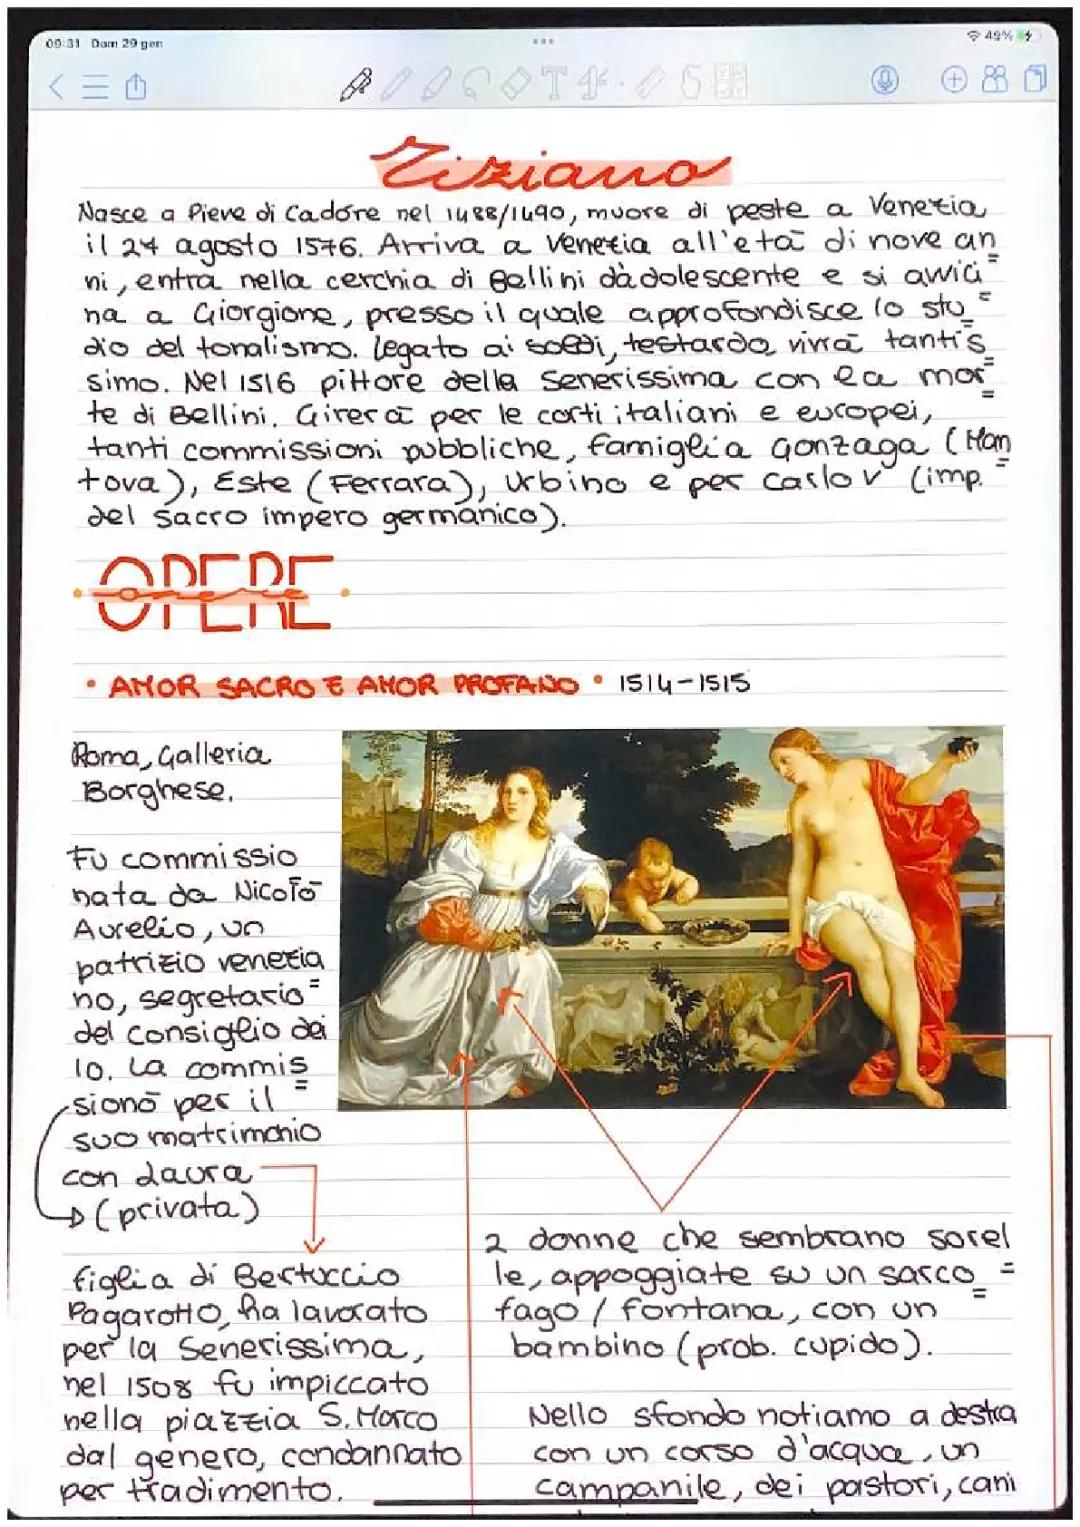 09:31 Dom 29 gen
49%
Tiziano
Nasce a Pieve di Cadore nel 1488/1490, muore di peste a Venezia
il 24 agosto 1576. Arriva a Venezia all'età di nove an
ni, entra nella cerchia di Bellini dàdolescente e si avvici=
na a Giorgione, presso il quale approfondisce lo stu=
dio del tonalismo. Legato ai soldi, testardo, vivrà tantis
simo. Nel 1516 pittore della Senerissima con la mor=
te di Bellini. Girerà per le corti italiani e europei,
tanti commissioni pubbliche, famiglia Gonzaga (Man
tova), Este (Ferrara), Urbino e per Carlo V (imp.
del sacro impero germanico).
OPERE
opere
• AMOR SACRO E AMOR PROFANO • 1514-1515
Roma, Galleria
Borghese.
Fu commissio
nata da Nicolò
Aurelio, un
patrizio venezia
no, segretario=
del consiglio dei
10. La commis
sionò per il=
suo matrimonio
con Laura
(privata)
figlia di Bertuccio
Pagarotto, ha lavorato
per la Senerissima,
nel 1508 fu impiccato
nella piazzia S. Marco
dal genero, condannato
per tradimento.
2 donne che sembrano sorel
le, appoggiate su un sarco=
fago / fontana, con un
bambino (prob. cupido).
Nello sfondo notiamo a destra
con un corso d'acqua, un
campanile, dei pastori, cani